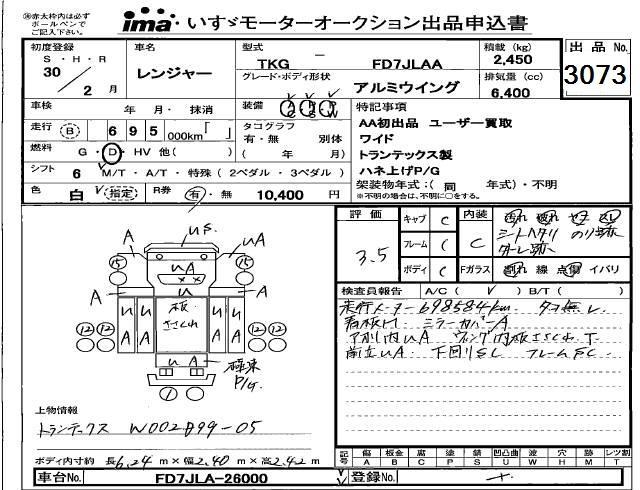 ※赤太枠内は必ず
ボールペンで
ご記入下さい。
ima いすゞモーターオークション出品申込書
初度登録
S・H・R
30 / 2 月
車名
レンジャー
型式
TKG － FD7JLAA
積載 (kg)
2,450
出品 No.
3073
グレード・ボディ形状
アルミウイング
排気量 (cc)
6,400
車検 年 月・ 抹消
装備
特記事項
AA初出品 ユーザー買取
ワイド
トランテックス製
ハネ上げP/G
架装物年式：( 同 年式)・不明
※不明の場合は、不明に○をする。
走行 B 695 000km「 」
タコグラフ
有・無 別体
( 年 月)
燃料 G・D・HV 他( )
シフト 6 M/T・A/T・特殊 (2ペダル・3ペダル)
色 白 (指定) R券 有・無 10,400 円
評価
3.5
キャブ C
フレーム C
ボディ C
内装
C
Fガラス
割れ 線 点傷 イバリ
検査員報告 A/C( ✓ ) B/T( )
走行メーター698584km タコ無し
看板け ミラーカバーA
下回りSC フレームSC
US.
A
UA
15
15
A
UA
A
UA
UA
板
ささくれ
12 12
12 12
UA
極東
P/G.
1
上物情報
トランテックス W002899-05
ボディ内寸約 長6.24m×幅2.40m×高2.42m
記号
傷 板金 腐 塗 錆 凹凸曲 ワレ 穴 跡 レツ割
A B C P S U W H M T
車台No. FD7JLA-26000
登録No.